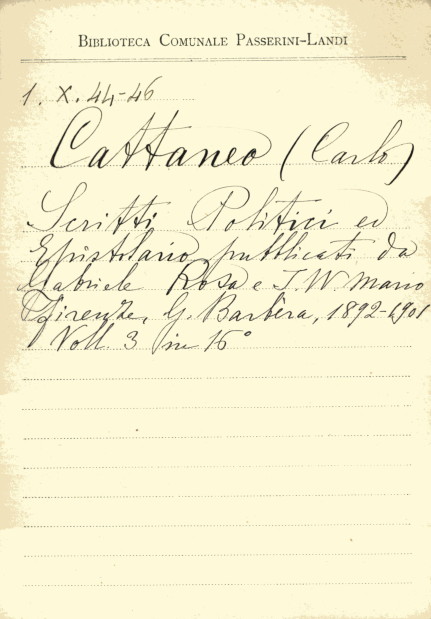 BIBLIOTECA COMUNALE PASSERINI-LANDI
1. X. 44-46
Cattaneo (Carlo)
Scritti Politici ed
Epistolario pubblicati da
Gabriele Rosa e J. W. Mario
Firenze, G. Barbèra, 1892-1901
Voll. 3 in 16°